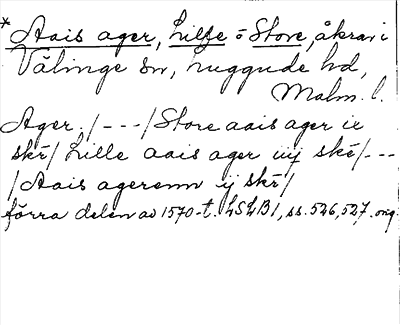 *Aais ager, Lille o Store, åkrar i
Välinge sn, Luggude hd,
Malm. l.
Ager. /---/ Store aais ager ie
skr/ Lille aais ager iiij skr/---
/Aais agerenn ij skr/
förra delen av 1570-t. LSLB1, ss. 526, 527. orig.